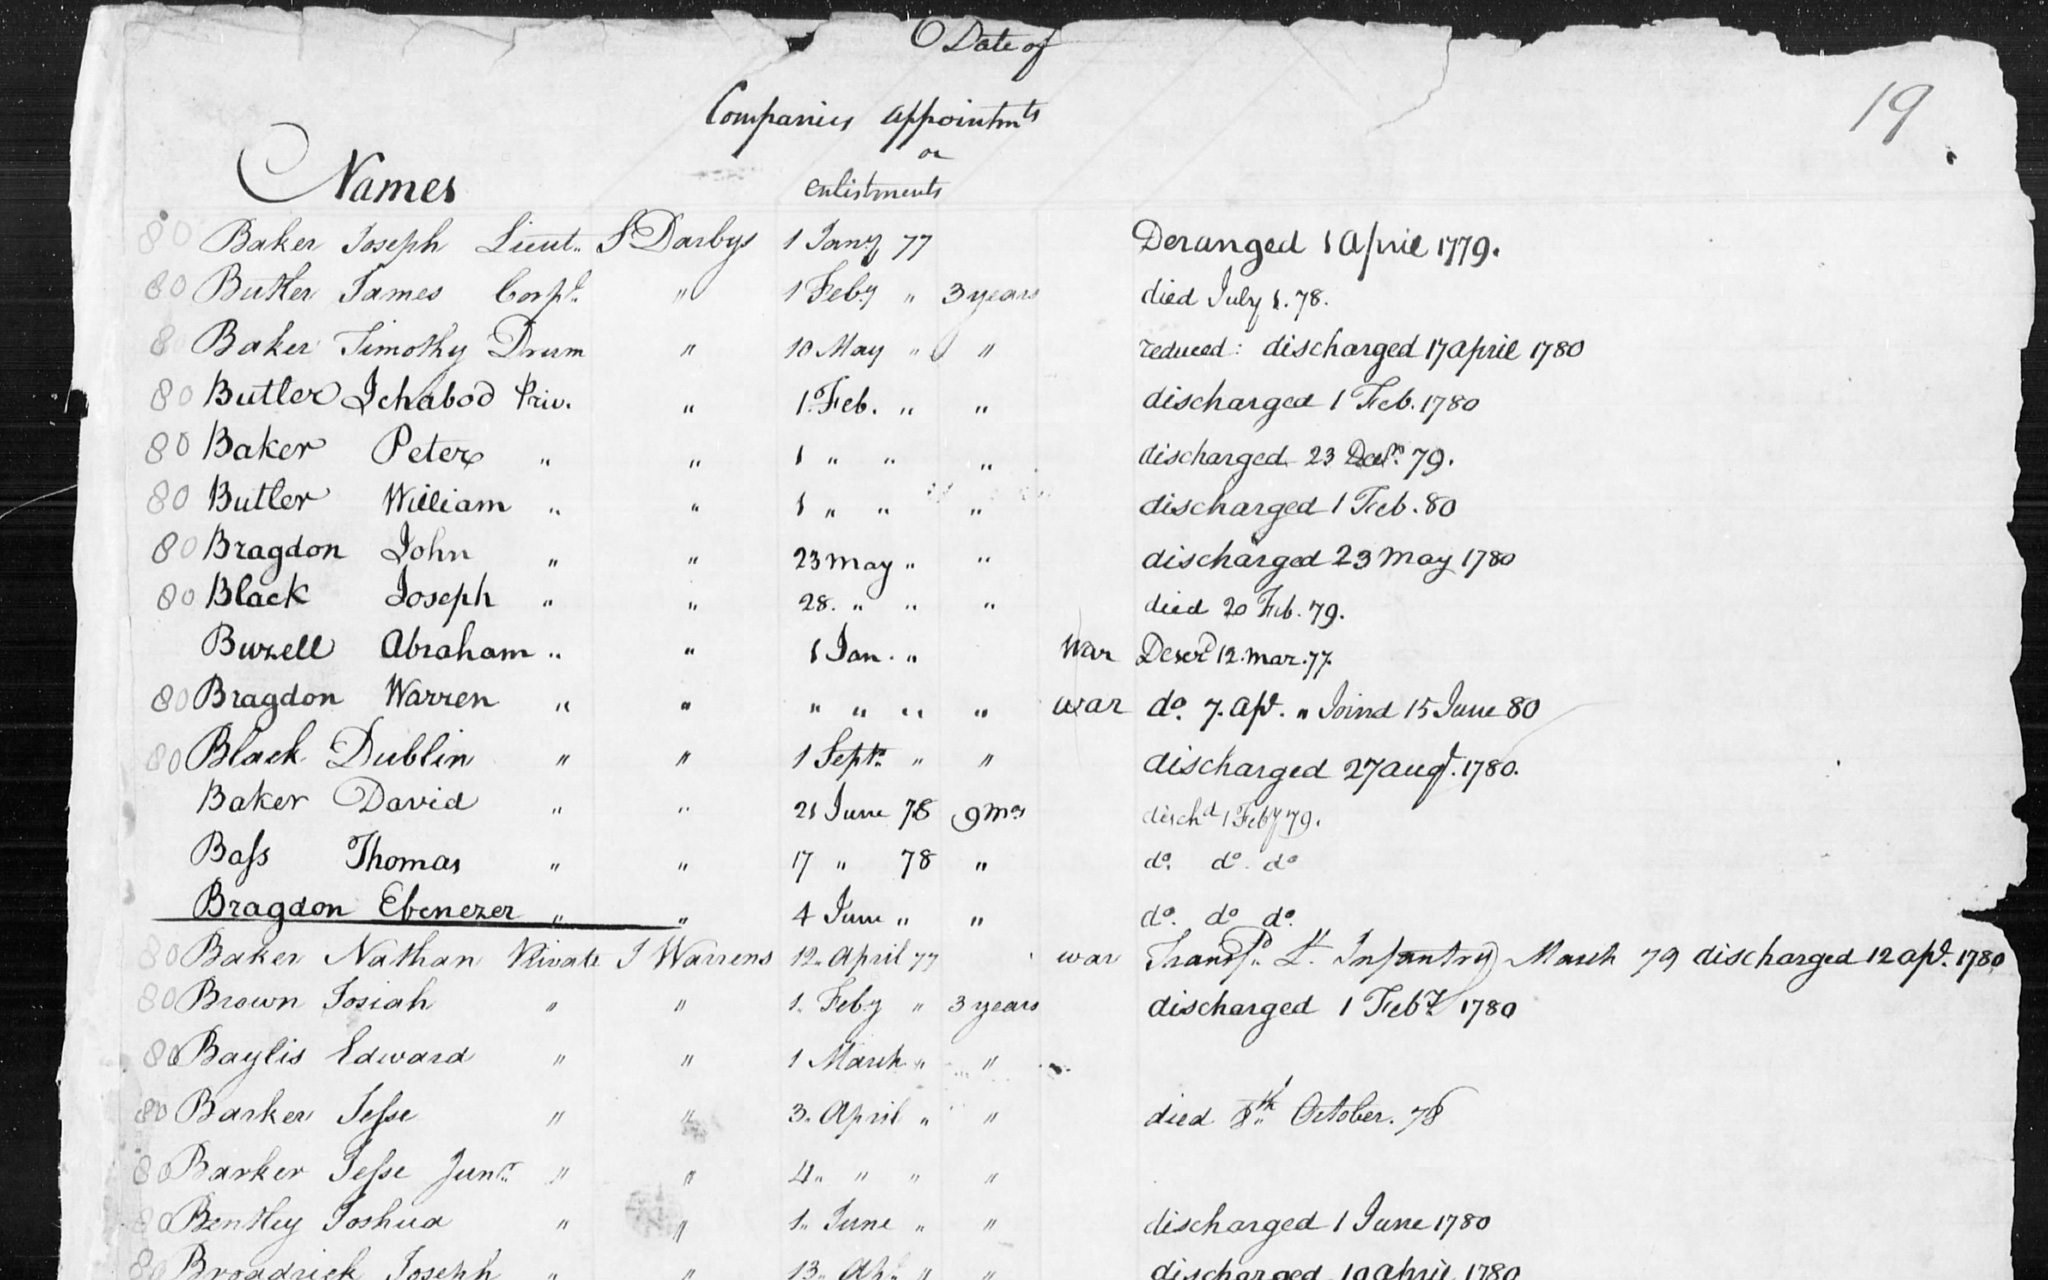 Date of
19
Companies appointmts
or
Names enlistments
80 Baker Joseph Lieut. S Darbys 1 Jany 77 Deranged 1 April 1779.
80 Butler James Corpl. " 1 Feby " 3 years died July 1. 78.
80 Baker Timothy Drum " 10 May " " reduced: discharged 17 april 1780
80 Butler Ichabod Priv. " 1. Feb. " " discharged 1 Feb. 1780
80 Baker Peter " " 1 " " " discharged 23 79.
80 Butler William " " 1 " " " discharged 1 Feb. 80
80 Bragdon John " " 23 May " " discharged 23 may 1780
80 Black Joseph " " 28. " " " died 20 Feb. 79.
Buzell Abraham " " 1 Jan. " War Deserd 12. mar. 77.
80 Bragdon Warren " " " " " " war do. 7. apl. " Joind 15 June 80
80 Black Dublin " " 1 Septr. " " discharged 27 augt. 1780.
Baker David " " 21 June 78 9 Mos dischd 1 Feby 79.
Baſs Thomas " " 17 " 78 " do. do. do
Bragdon Ebenezer " " 4 June " " do. do do.
80 Baker Nathan Private J Warrens 12. April 77 war Transfd. Lt. Infantry March 79 discharged 12 apl. 1780
80 Brown Josiah " " 1. Feby " 3 years discharged 1 Feby 1780
80 Baylis Edward " " 1 March " "
80 Barker Jeſse " " 3. April " " died 8th. October. 78
80 Barker Jeſse Junr. " " 4. " " "
80 Bentley Joshua " " 1. June " " discharged 1 June 1780
80 Broadrick Joseph " " 13. Apl. " " discharged april 1780